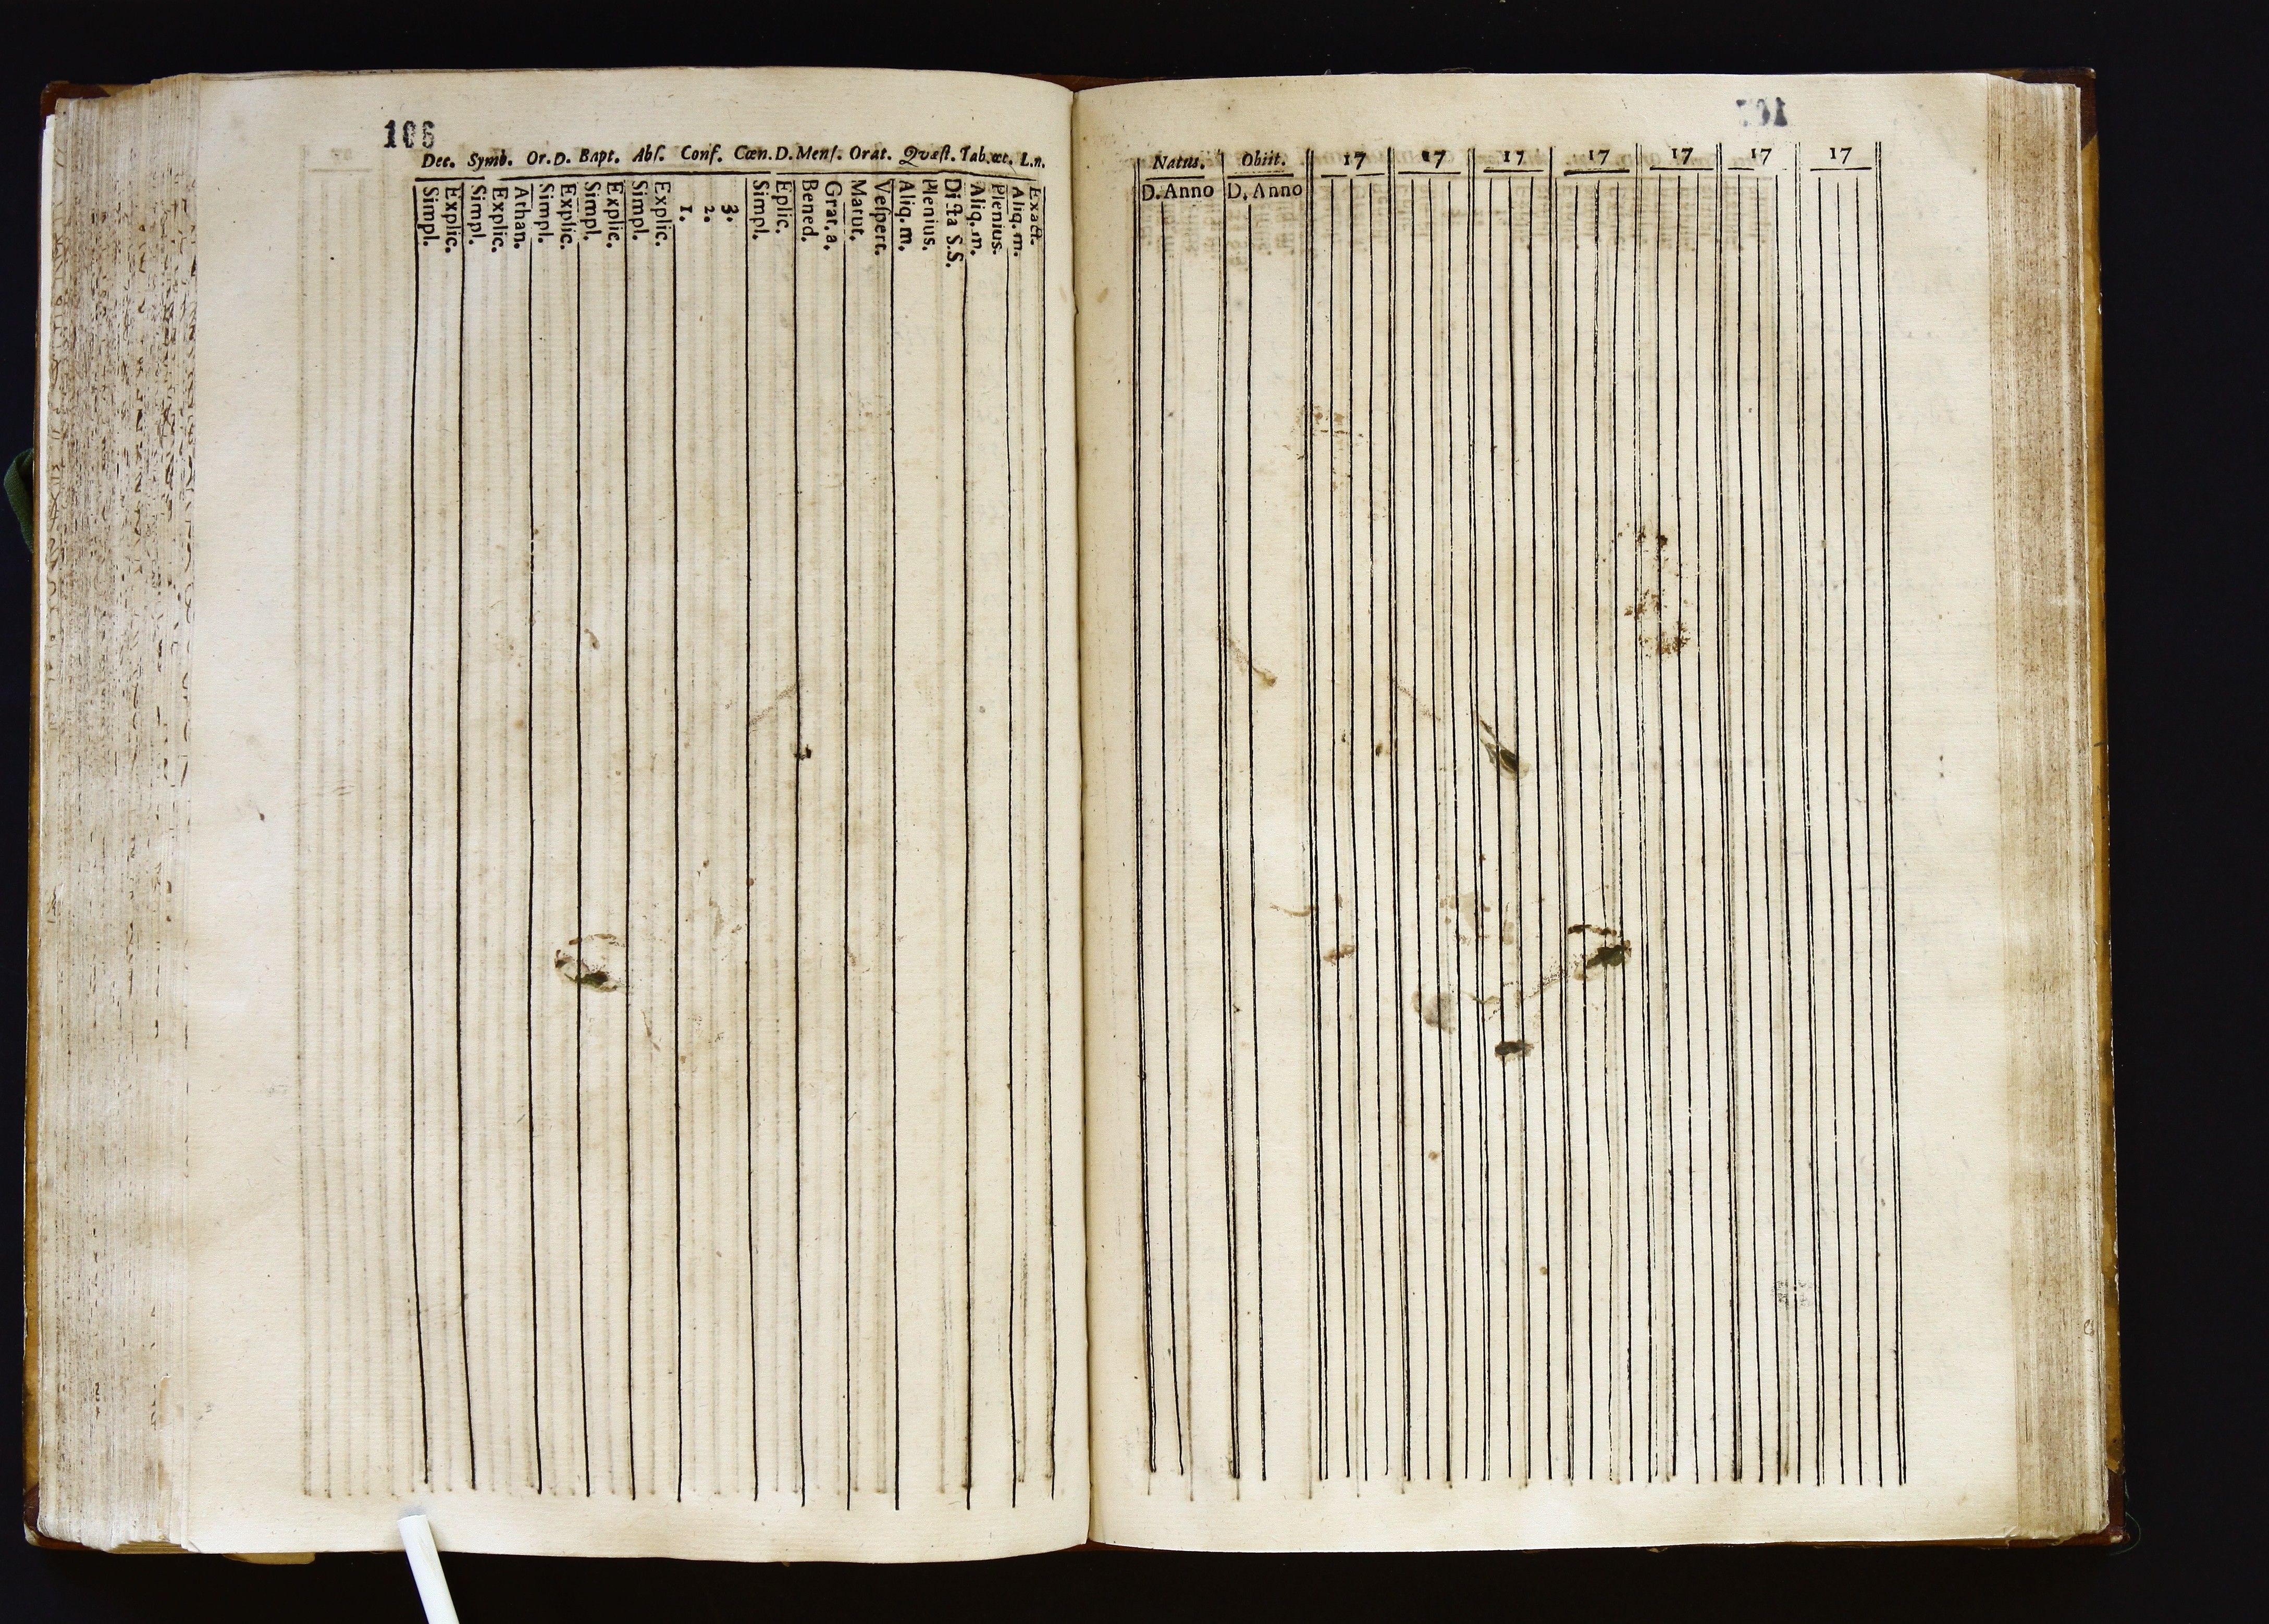 106
Dec. Symb. Or.D. Bapt. Abſ. Conf. Cœn.D. Menſ. Orat. Qvæſt. Tab.œc. L.n.
Simpl.
Explic.
Simpl.
Explic.
Athan.
Simpl.
Explic.
Simpl.
Explic.
Simpl.
Explic.
1.
2.
3.
Simpl.
Eplic.
Bened.
Grat.a.
Matut.
Veſpert.
Aliq.m.
Plenius.
Dicta S.S.
Aliq.m.
Plenius.
Aliq.m.
Exact.
Natus. Obiit. 17 17 17 17 17 17 17
D.Anno D.Anno